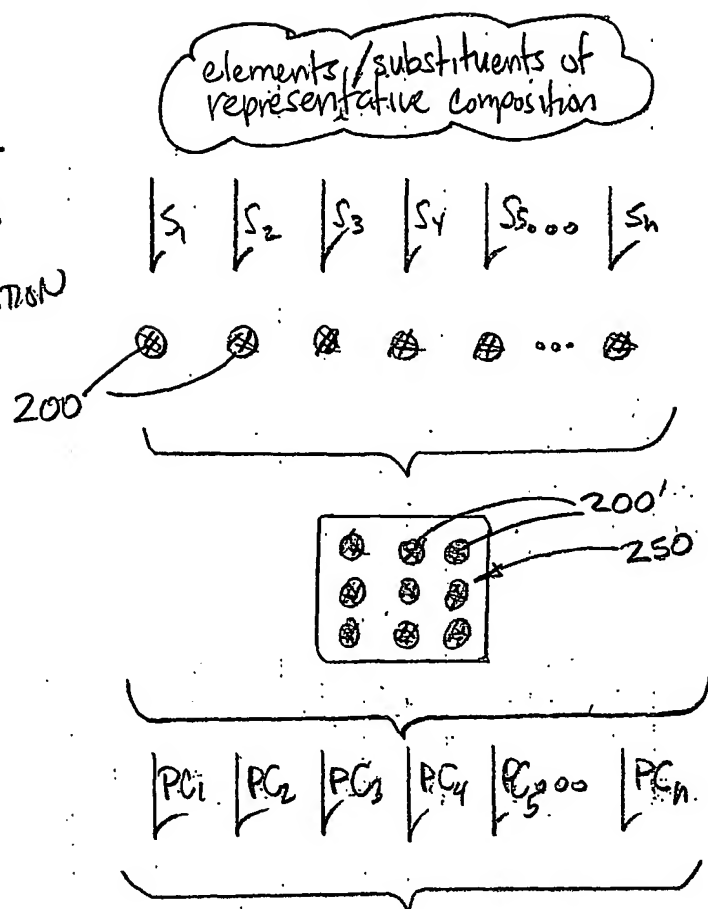 elements/substituents of
representative composition
S1 S2 S3 S4 S5 ... Sn
...
200
200'
250
PC1 PC2 PC3 PC4 PC5 ... PCn